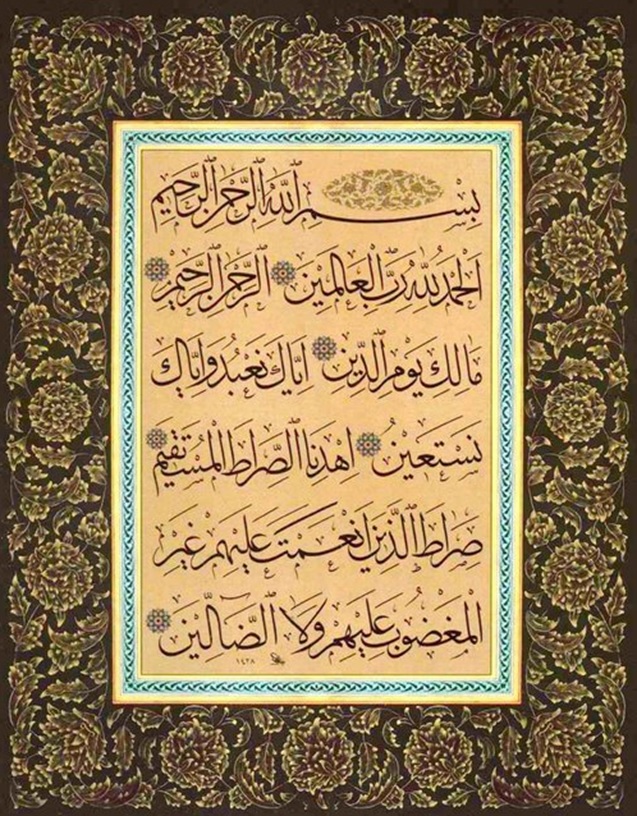 بِسْمِ اللهِ الرَّحْمٰنِ الرَّحِيْمِ
اَلْحَمْدُ لِلّٰهِ رَبِّ الْعَالَمِيْنَ الرَّحْمٰنِ الرَّحِيْمِ
مَالِكِ يَوْمِ الدِّيْنِ اِيَّاكَ نَعْبُدُ وَاِيَّاكَ
نَسْتَعِيْنُ اِهْدِنَا الصِّرَاطَ الْمُسْتَقِيْمَ
صِرَاطَ الَّذِيْنَ اَنْعَمْتَ عَلَيْهِمْ غَيْرِ
الْمَغْضُوْبِ عَلَيْهِمْ وَلَا الضَّالِّيْنَ
١٤٢٨